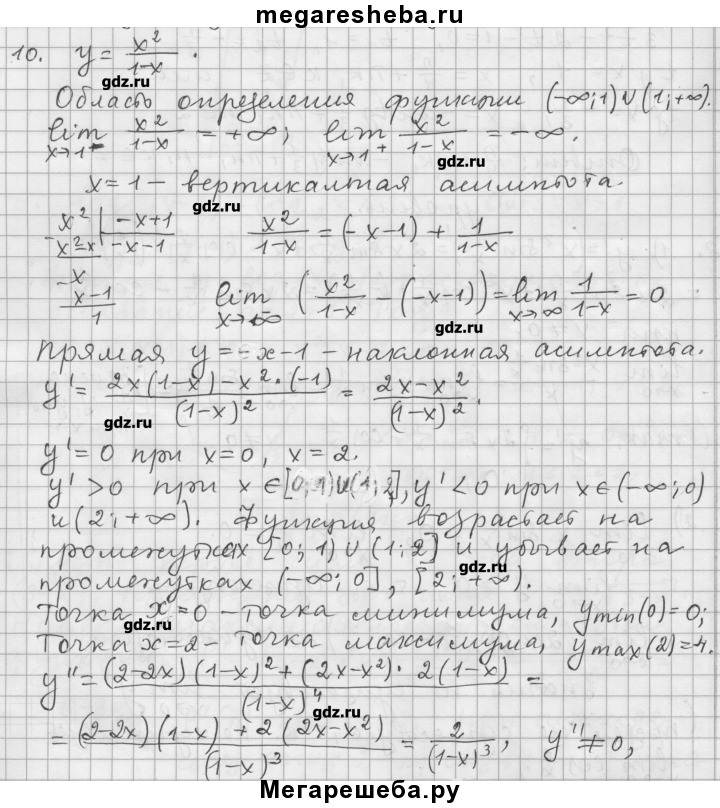 www.megaresheba.ru
10. y = x²/(1-x).
gdz.ru
Область определения функции (-∞;1)∪(1;+∞).
lim x→1⁻ x²/(1-x) = +∞; lim x→1⁺ x²/(1-x) = -∞.
gdz.ru
x=1 – вертикальная асимптота.
gdz.ru
x² | -x+1
x²-x | -x-1
x
x-1
1
x²/(1-x) = (-x-1) + 1/(1-x)
lim x→∞ (x²/(1-x) - (-x-1)) = lim x→∞ 1/(1-x) = 0
gdz.ru
Прямая y = -x-1 – наклонная асимптота.
y' = (2x(1-x) - x²·(-1))/(1-x)² = (2x-x²)/(1-x)².
gdz.ru
y'=0 при x=0, x=2.
y'>0 при x∈[0;1)∪(1;2], y'<0 при x∈(-∞;0)
и (2;+∞). Функция возрастает на
промежутках [0;1)∪(1;2] и убывает на
промежутках (-∞;0], [2;+∞).
gdz.ru
Точка x=0 – точка минимума, ymin(0)=0;
gdz.ru
Точка x=2 – точка максимума, ymax(2)=-4.
y'' = ((2-2x)(1-x)² + (2x-x²)·2(1-x))/(1-x)⁴ =
gdz.ru
= ((2-2x)(1-x) + 2(2x-x²))/(1-x)³ = 2/(1-x)³, y''≠0,
Мегарешеба.ру